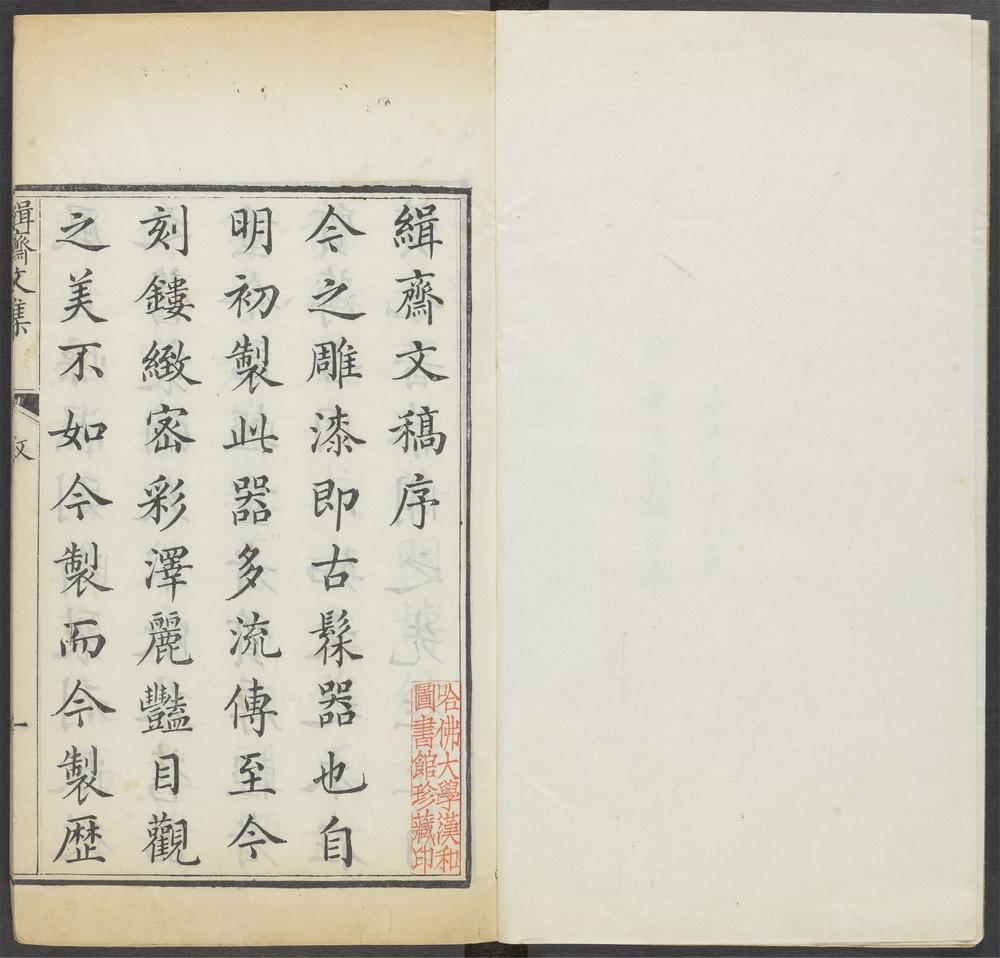 緝齋文稿序
今之雕漆即古髹器也自
明初製此器多流傳至今
刻鏤緻密彩澤麗豔目觀
之美不如今製而今製歴
緝齋文集
序
一
哈佛大學漢和
圖書館珍藏印